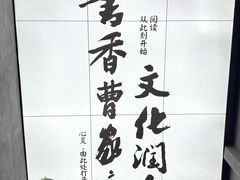 书香曹家
阅读
从此刻开始
文化润
心灵·由此处打